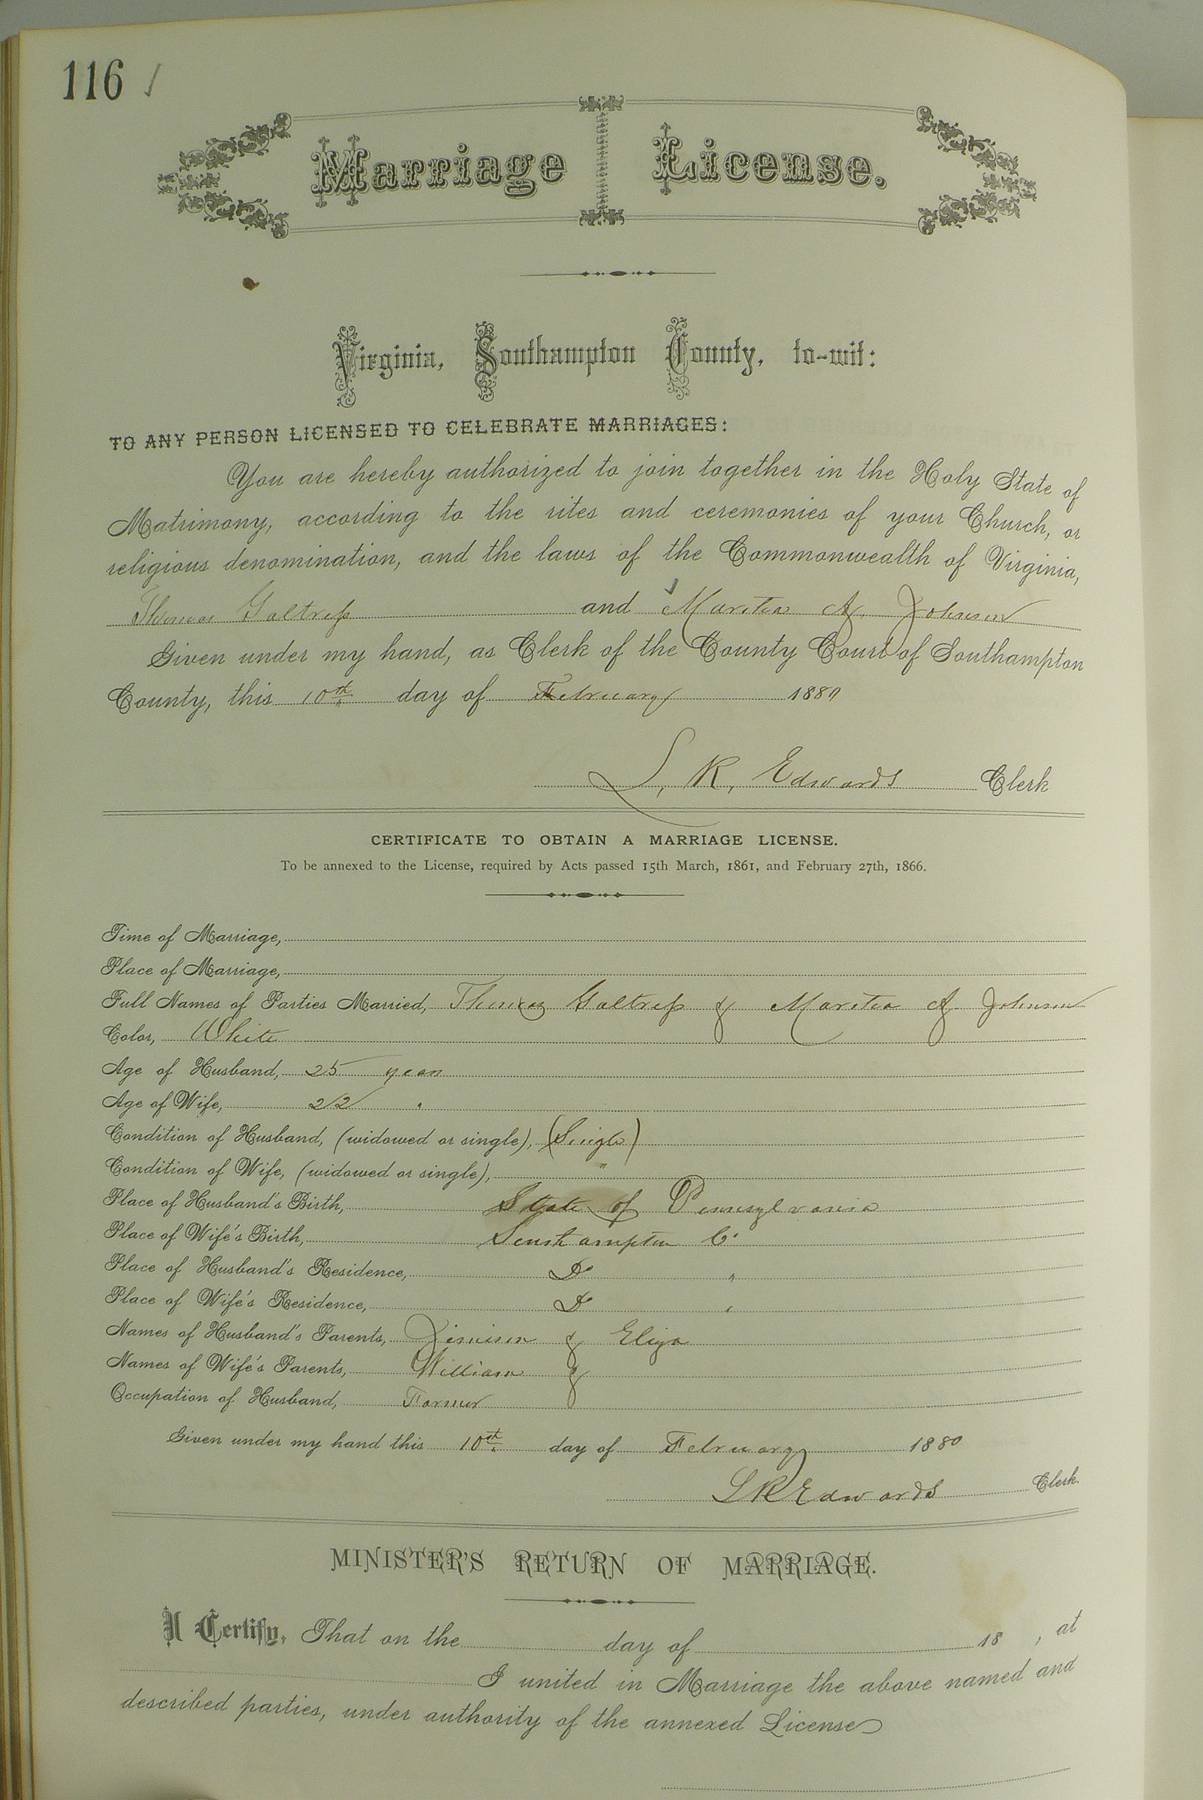 116
Marriage License.
Virginia, Southampton County, to-wit:
TO ANY PERSON LICENSED TO CELEBRATE MARRIAGES:
You are hereby authorized to join together in the Holy State of
Matrimony, according to the rites and ceremonies of your Church, or
religious denomination, and the laws of the Commonwealth of Virginia,
Thomas and A. Johnson
Given under my hand, as Clerk of the County Court of Southampton
County, this 10th day of February 1880
L. R. Edwards Clerk
CERTIFICATE TO OBTAIN A MARRIAGE LICENSE.
To be annexed to the License, required by Acts passed 15th March, 1861, and February 27th, 1866.
Time of Marriage,
Place of Marriage,
Full Names of Parties Married, Thomas & A. Johnson
Color, White
Age of Husband, 25 years
Age of Wife, 22 "
Condition of Husband, (widowed or single), (Single)
Condition of Wife, (widowed or single), "
Place of Husband's Birth, State of Pennsylvania
Place of Wife's Birth, Southampton Co
Place of Husband's Residence, Do "
Place of Wife's Residence, Do "
Names of Husband's Parents, & Eliza
Names of Wife's Parents, William &
Occupation of Husband, Farmer
Given under my hand this 10th day of February 1880
L R Edwards Clerk.
MINISTER'S RETURN OF MARRIAGE.
I Certify, That on the day of 18 , at
I united in Marriage the above named and
described parties, under authority of the annexed License